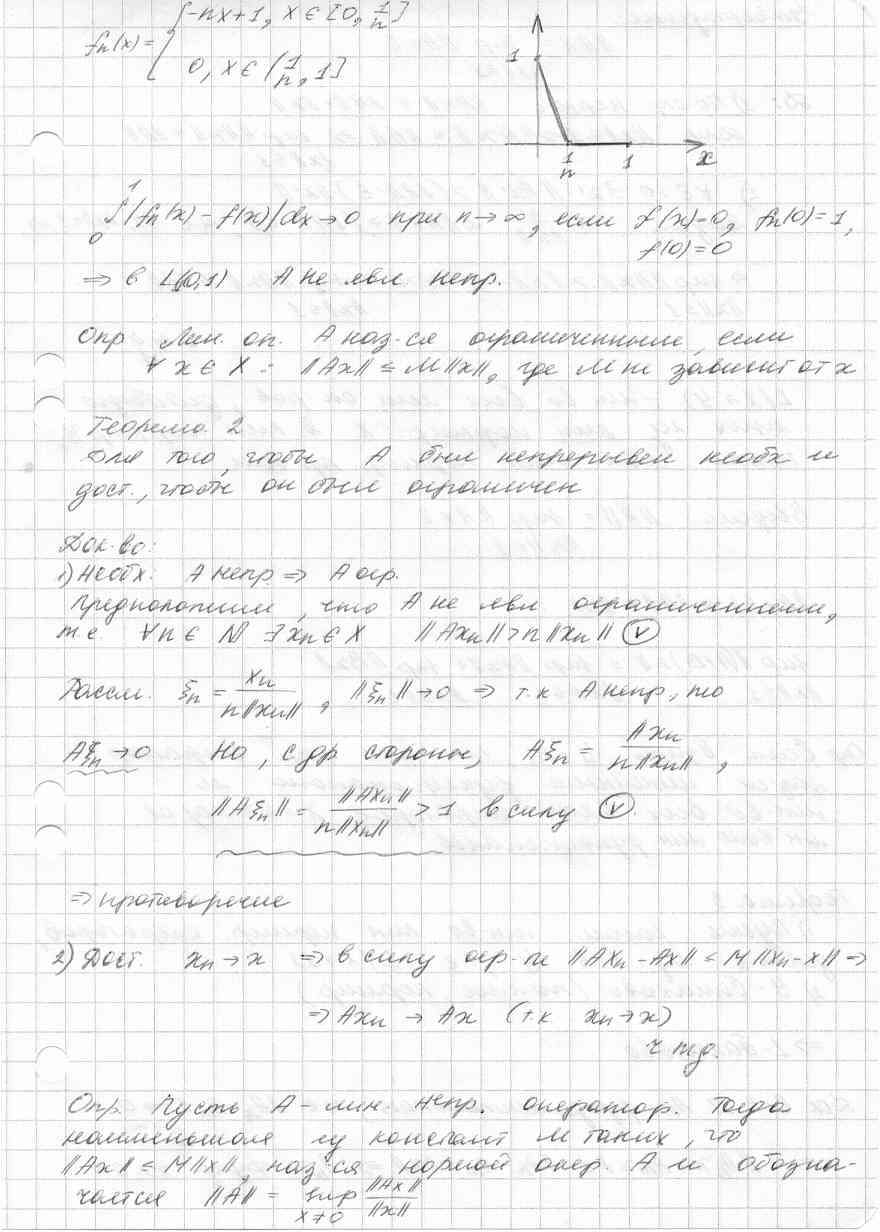 fₙ(x) = { -nx+1, x ∈ [0, 1/n]
0, x ∈ (1/n, 1]
1
1/n 1 x
∫₀¹ |fₙ(x) - f(x)| dx → 0 при n → ∞, если f(x)=0, fₙ(0)=1,
f(0)=0
⇒ в L(0,1) A не явл. непр.
Опр Лин. оп. A наз-ся ограниченным, если
∀ x ∈ X : ||Ax|| ≤ M||x||, где M не зависит от x
Теорема 2
Для того, чтобы A был непрерывен необх и
дост., чтобы он был ограничен
Док-во:
1) Необх: A непр ⇒ A огр.
Предположим, что A не явл ограниченным,
т.е. ∀n ∈ N ∃ xₙ ∈ X ||Axₙ|| > n ||xₙ|| (V)
Рассм. ξₙ = xₙ / n||xₙ||, ||ξₙ|| → 0 ⇒ т.к A непр, то
Aξₙ → 0 Но, с др стороны, Aξₙ = ||Axₙ / n||xₙ||,
||Aξₙ|| = ||Axₙ|| / n||xₙ|| > 1 в силу (V).
⇒ противоречие
2) Дост. xₙ → x ⇒ в силу огр-ти ||Axₙ - Ax|| ≤ M||xₙ - x|| ⇒
⇒ Axₙ → Ax (т.к xₙ → x)
ч т.д.
Опр. Пусть A - лин. непр. оператор. Тогда
наименьшая из констант M таких, что
||Ax|| ≤ M||x||, наз-ся нормой опер. A и обозна-
чается ||A|| = sup x≠0 ||Ax|| / ||x||